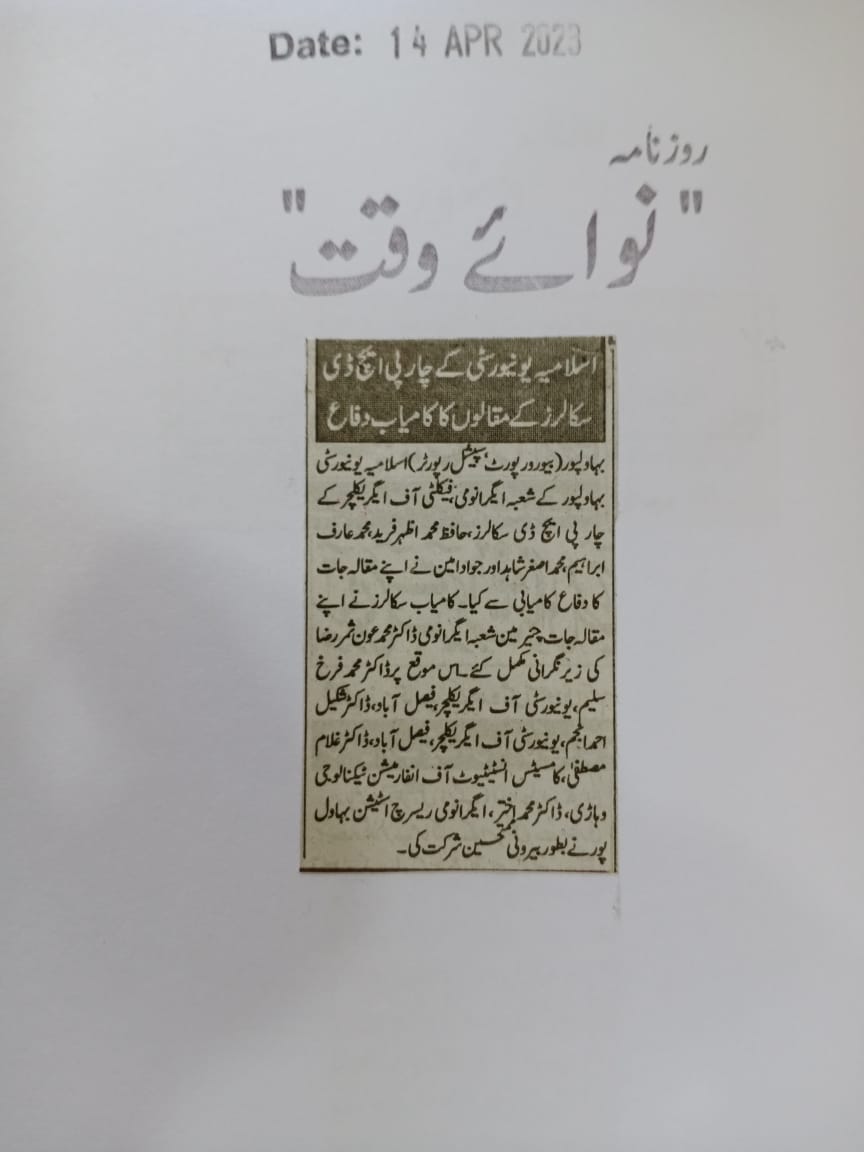 Date: 14 APR 2023
روزنامہ
"نوائے وقت"
اسلامیہ یونیورسٹی کے چار پی ایچ ڈی
سکالرز کے مقالوں کا کامیاب دفاع
بہاولپور (بیورورپورٹ، سپیشل رپورٹر) اسلامیہ یونیورسٹی
بہاولپور کے شعبہ ایگرانومی، فیکلٹی آف ایگریکلچر کے
چار پی ایچ ڈی سکالرز، حافظ محمد اظہر فرید، محمد عارف
ابراہیم، محمد اصغر شاہد اور جواد امین نے اپنے مقالہ جات
کا دفاع کامیابی سے کیا۔ کامیاب سکالرز نے اپنے
مقالہ جات چیئرمین شعبہ ایگرانومی ڈاکٹر محمد عون ثمر رضا
کی زیر نگرانی مکمل کئے۔ اس موقع پر ڈاکٹر محمد فرخ
سلیم، یونیورسٹی آف ایگریکلچر، فیصل آباد، ڈاکٹر شکیل
احمد انجم، یونیورسٹی آف ایگریکلچر، فیصل آباد، ڈاکٹر غلام
مصطفیٰ، کامسیٹس انسٹیٹیوٹ آف انفارمیشن ٹیکنالوجی
وہاڑی، ڈاکٹر محمد اختر، ایگرانومی ریسرچ اسٹیشن بہاول
پور نے بطور بیرونی ممتحسین شرکت کی۔